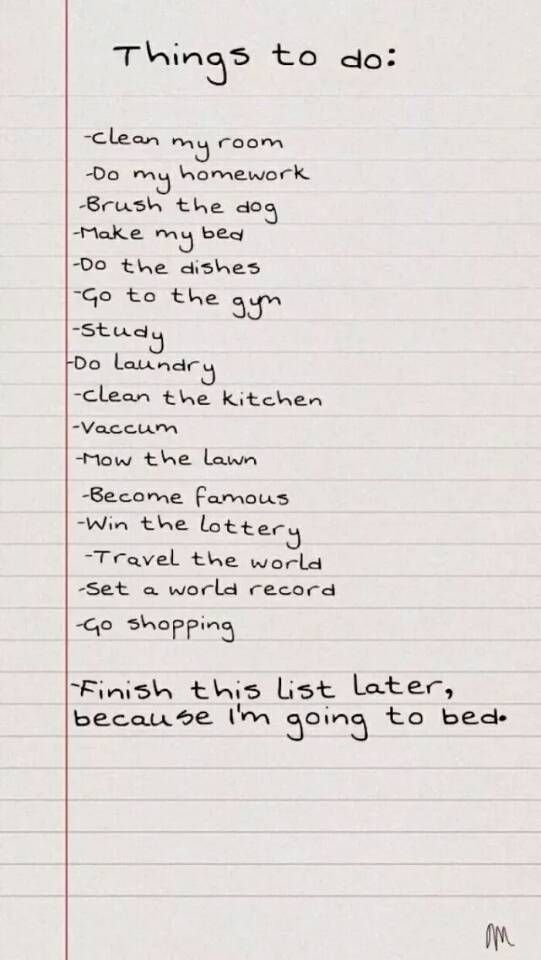 Things to do:
-Clean my room
-Do my homework
-Brush the dog
-Make my bed
-Do the dishes
-Go to the gym
-Study
-Do laundry
-Clean the kitchen
-Vaccum
-Mow the lawn
-Become famous
-Win the lottery
-Travel the world
-Set a world record
-Go shopping
-Finish this list later,
because I'm going to bed.
M